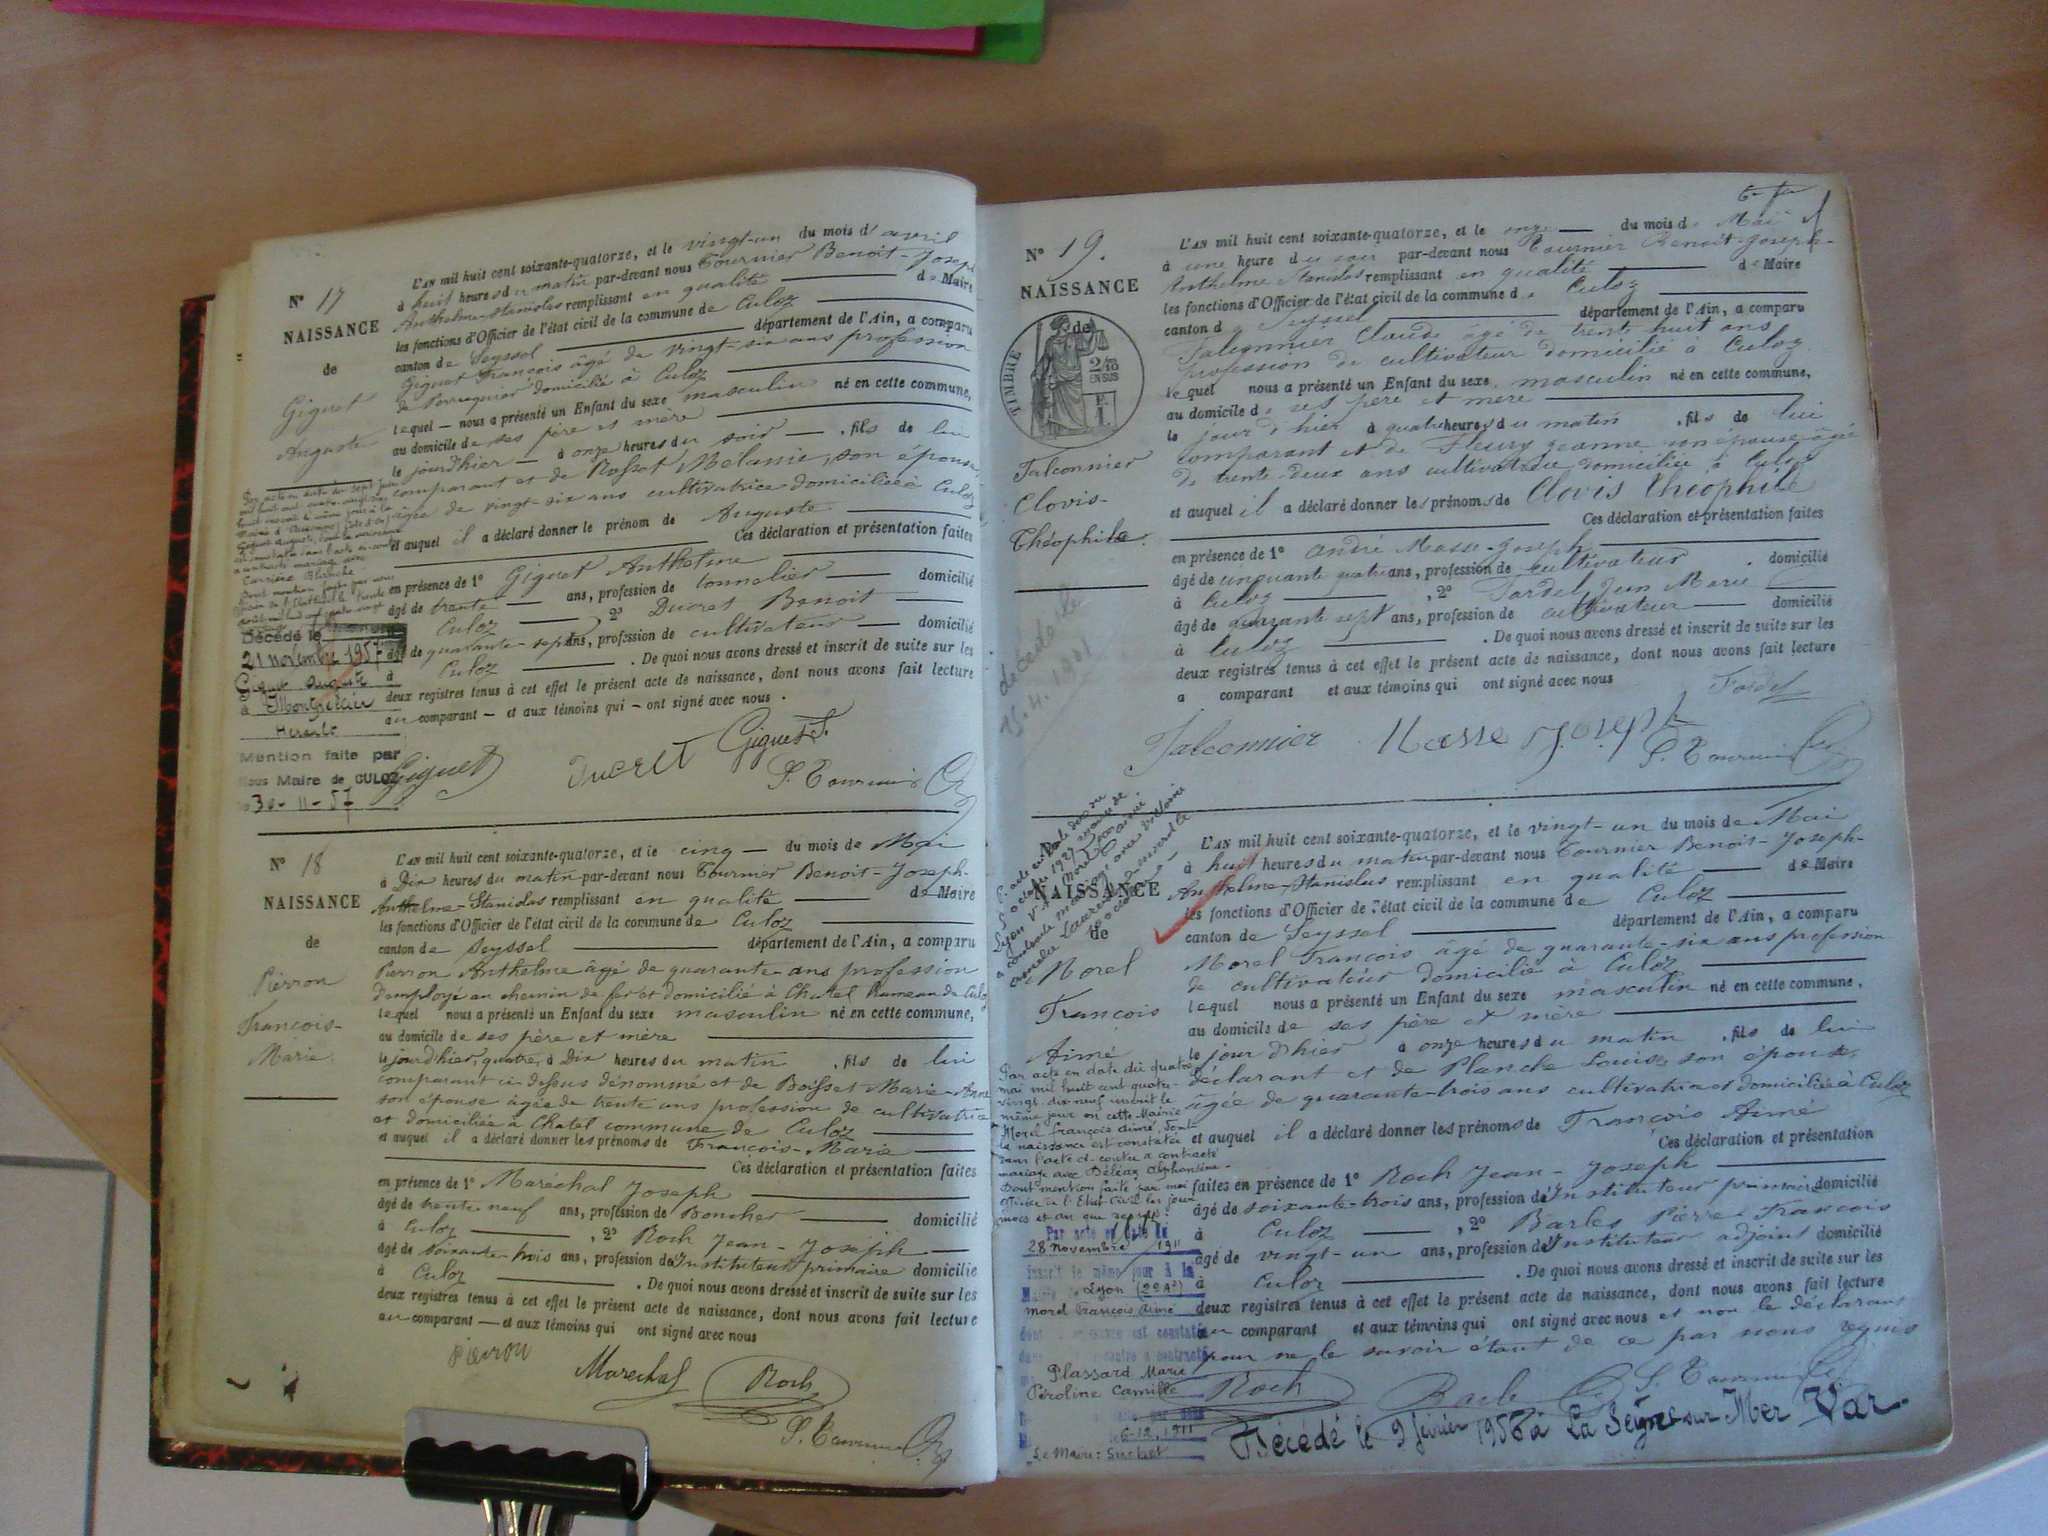 N° 17
NAISSANCE
de
Giguet
Auguste
L'AN mil huit cent soixante-quatorze, et le vingt-un du mois d'avril
à huit heures du matin par-devant nous Tournier Benoit-Joseph
Anthelme-Stanislas remplissant en qualité de Maire
les fonctions d'Officier de l'état civil de la commune de Culoz
canton de Seyssel département de l'Ain, a comparu
Giguet François âgé de vingt-six ans profession
de Perruquier domicilié à Culoz
lequel nous a présenté un Enfant du sexe masculin né en cette commune,
au domicile de ses père et mère
le jour d'hier à onze heures du soir fils de lui
comparant et de Rosset Melanie, son épouse
âgée de vingt-six ans cultivatrice domiciliée à Culoz
et auquel il a déclaré donner le prénom de Auguste
Ces déclaration et présentation faites
en présence de 1° Giguet Anthelme
âgé de trente ans, profession de tonnelier domicilié
à Culoz , 2° Ducret Benoit
âgé de quarante-sept ans, profession de cultivateur domicilié
à Culoz . De quoi nous avons dressé et inscrit de suite sur les
deux registres tenus à cet effet le présent acte de naissance, dont nous avons fait lecture
au comparant et aux témoins qui ont signé avec nous .
Giguet Ducret Giguet S. Tournier
Carrière Blanche
Décédé le
21 novembre 1957
Giguet Auguste
à Montpellier
Herault
Mention faite par
Nous Maire de CULOZ
30-11-57
N° 18
NAISSANCE
de
Pierron
François-
Marie
L'AN mil huit cent soixante-quatorze, et le cinq du mois de Mai
à Dix heures du matin par-devant nous Tournier Benoit-Joseph-
Anthelme-Stanislas remplissant en qualité de Maire
les fonctions d'Officier de l'état civil de la commune de Culoz
canton de Seyssel département de l'Ain, a comparu
Pierron Anthelme âgé de quarante ans profession
d'employé au chemin de fer et domicilié à Chatel hameau de Culoz
lequel nous a présenté un Enfant du sexe masculin né en cette commune,
au domicile de ses père et mère
le jour d'hier, quatre, à Dix heures du matin , fils de lui
comparant ci-dessus dénommé et de Boisset Marie-Anne
son épouse âgée de trente ans profession de cultivatrice
et domiciliée à Chatel commune de Culoz
et auquel il a déclaré donner les prénoms de François-Marie
Ces déclaration et présentation faites
en présence de 1° Maréchal Joseph
âgé de trente neuf ans, profession de Boucher domicilié
à Culoz , 2° Roch Jean-Joseph
âgé de soixante-trois ans, profession d'Instituteur primaire domicilié
à Culoz . De quoi nous avons dressé et inscrit de suite sur les
deux registres tenus à cet effet le présent acte de naissance, dont nous avons fait lecture
au comparant — et aux témoins qui ont signé avec nous
pierron Marechal Roch
S. Tournier
N° 19.
NAISSANCE
de
TIMBRE
2/10
EN SUS
Falconnier
Clovis-
Théophile.
décédé le
15.4.1961
L'AN mil huit cent soixante-quatorze, et le onze du mois de Mai
à une heure du soir par-devant nous Tournier Benoit-Joseph-
Anthelme Stanislas remplissant en qualité de Maire
les fonctions d'Officier de l'état civil de la commune de Culoz
canton de Seyssel département de l'Ain, a comparu
Falconnier Claude âgé de trente huit ans
profession de cultivateur domicilié à Culoz
lequel nous a présenté un Enfant du sexe masculin né en cette commune,
au domicile de ses père et mère
le jour d'hier à quatre heures du matin , fils de lui
comparant et de Fleury Jeanne son épouse âgée
de trente-deux ans cultivatrice domiciliée à Culoz
et auquel il a déclaré donner les prénoms de Clovis Théophile
Ces déclaration et présentation faites
en présence de 1° André Masse-Joseph
âgé de cinquante quatre ans, profession de cultivateur domicilié
à Culoz , 2° Fardel Jean Marie
âgé de quarante sept ans, profession de cultivateur domicilié
à Culoz . De quoi nous avons dressé et inscrit de suite sur les
deux registres tenus à cet effet le présent acte de naissance, dont nous avons fait lecture
a comparant et aux témoins qui ont signé avec nous
Fardel
Falconnier Masse Joseph S. Tournier
NAISSANCE
de
Morel
François
Aimé
L'AN mil huit cent soixante-quatorze, et le vingt-un du mois de Mai
à huit heures du matin par-devant nous Tournier Benoit-Joseph-
Anthelme-Stanislas remplissant en qualité de Maire
les fonctions d'Officier de l'état civil de la commune de Culoz
canton de Seyssel département de l'Ain, a comparu
Morel François âgé de quarante-six ans profession
de cultivateur domicilié à Culoz
lequel nous a présenté un Enfant du sexe masculin né en cette commune,
au domicile de ses père et mère
le jour d'hier à onze heures du matin , fils de lui
déclarant et de Planche Louise son épouse
âgée de quarante-trois ans cultivatrice et domiciliée à Culoz
et auquel il a déclaré donner les prénoms de François Aimé
Ces déclaration et présentation
faites en présence de 1° Roch Jean-Joseph
âgé de soixante-trois ans, profession d'Instituteur primaire domicilié
à Culoz , 2° Barles Pierre-François
âgé de vingt-un ans, profession d'Instituteur adjoint domicilié
à Culoz . De quoi nous avons dressé et inscrit de suite sur les
deux registres tenus à cet effet le présent acte de naissance, dont nous avons fait lecture
au comparant et aux témoins qui ont signé avec nous et non le déclarant
pour ne le savoir étant de ce par nous requis
Roch S. Tournier
Décédé le 9 février 1958 à La Seyne sur Mer Var.
Par acte en date du quatre
mai mil huit cent quatre-
vingt dix neuf inscrit le
même jour en cette Mairie
Morel François Aimé, dont
la naissance est constatée
dans l'acte ci-contre a contracté
mariage avec Déléaz Alphonsine.
Dont mention faite par moi
officier de l'Etat Civil les jour
mois et an que dessus.
Par acte en date du
28 novembre 1911
inscrit le même jour à la
Mairie de Lyon (2e Ar)
Morel François Aimé
Plassard Marie
Péroline Camille
le 6-12.1911
Le Maire: Suchet